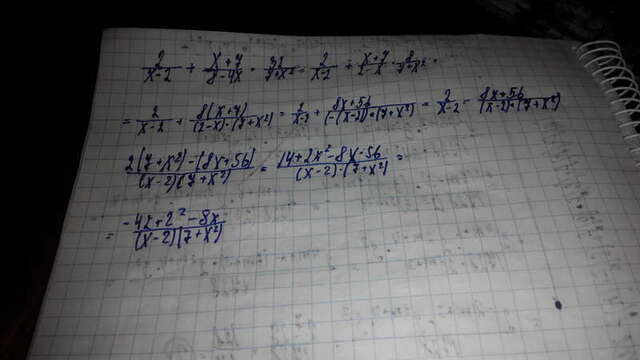 2/(x-2) + (x+7)/(8-4x) · 32/(7+x²) = 2/(x-2) + (x+7)/(2-x) · 8/(7+x²) =
= 2/(x-2) + 8(x+7)/((2-x)·(7+x²)) = 2/(x-2) + (8x+56)/(-(x-2))·(7+x²) = 2/(x-2) - (8x+56)/((x-2)·(7+x²))
(2(7+x²)-(8x+56))/((x-2)(7+x²)) = (14+2x²-8x-56)/((x-2)·(7+x²)) =
= (-42+2²-8x)/((x-2)(7+x²))